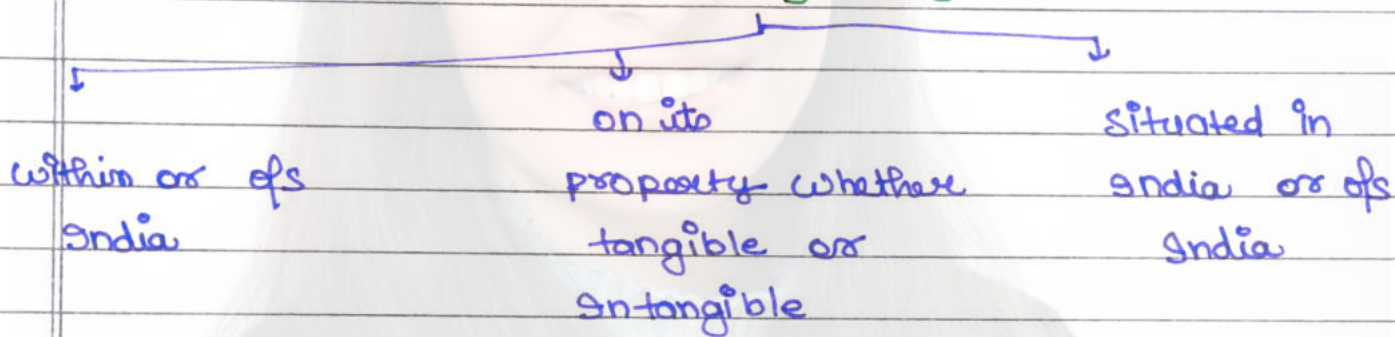 within or o/s
India
on its
property whether
tangible or
Intangible
situated in
India or o/s
India